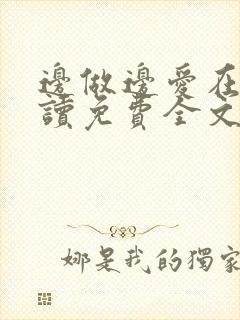 邊做邊愛在
讀免費全文
娜是我的獨家